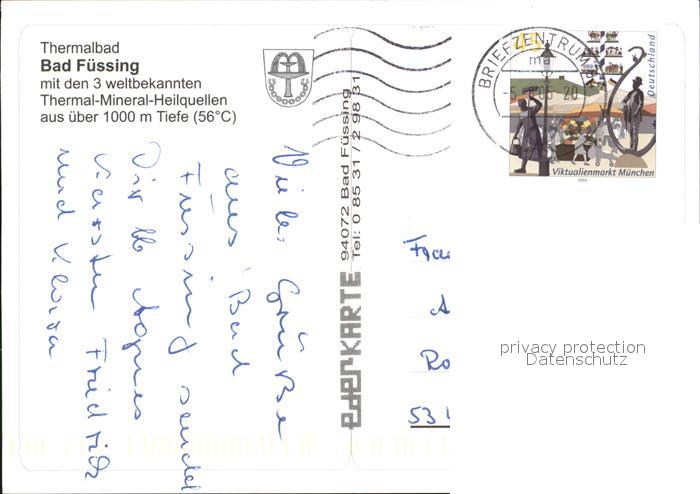 Thermalbad
Bad Füssing
mit den 3 weltbekannten
Thermal-Mineral-Heilquellen
aus über 1000 m Tiefe (56°C)
Viele Grüße
aus Bad
Füssing sendet
Dir lb Agnes
Karsten Friedrich
und
94072 Bad Füssing
Tel: 0 85 31 / 2 98 31
ederKARTE
BRIEFZENTRUM
ma
45
Deutschland
Viktualienmarkt München
2003
Frau
A
Ro
53
privacy protection
Datenschutz